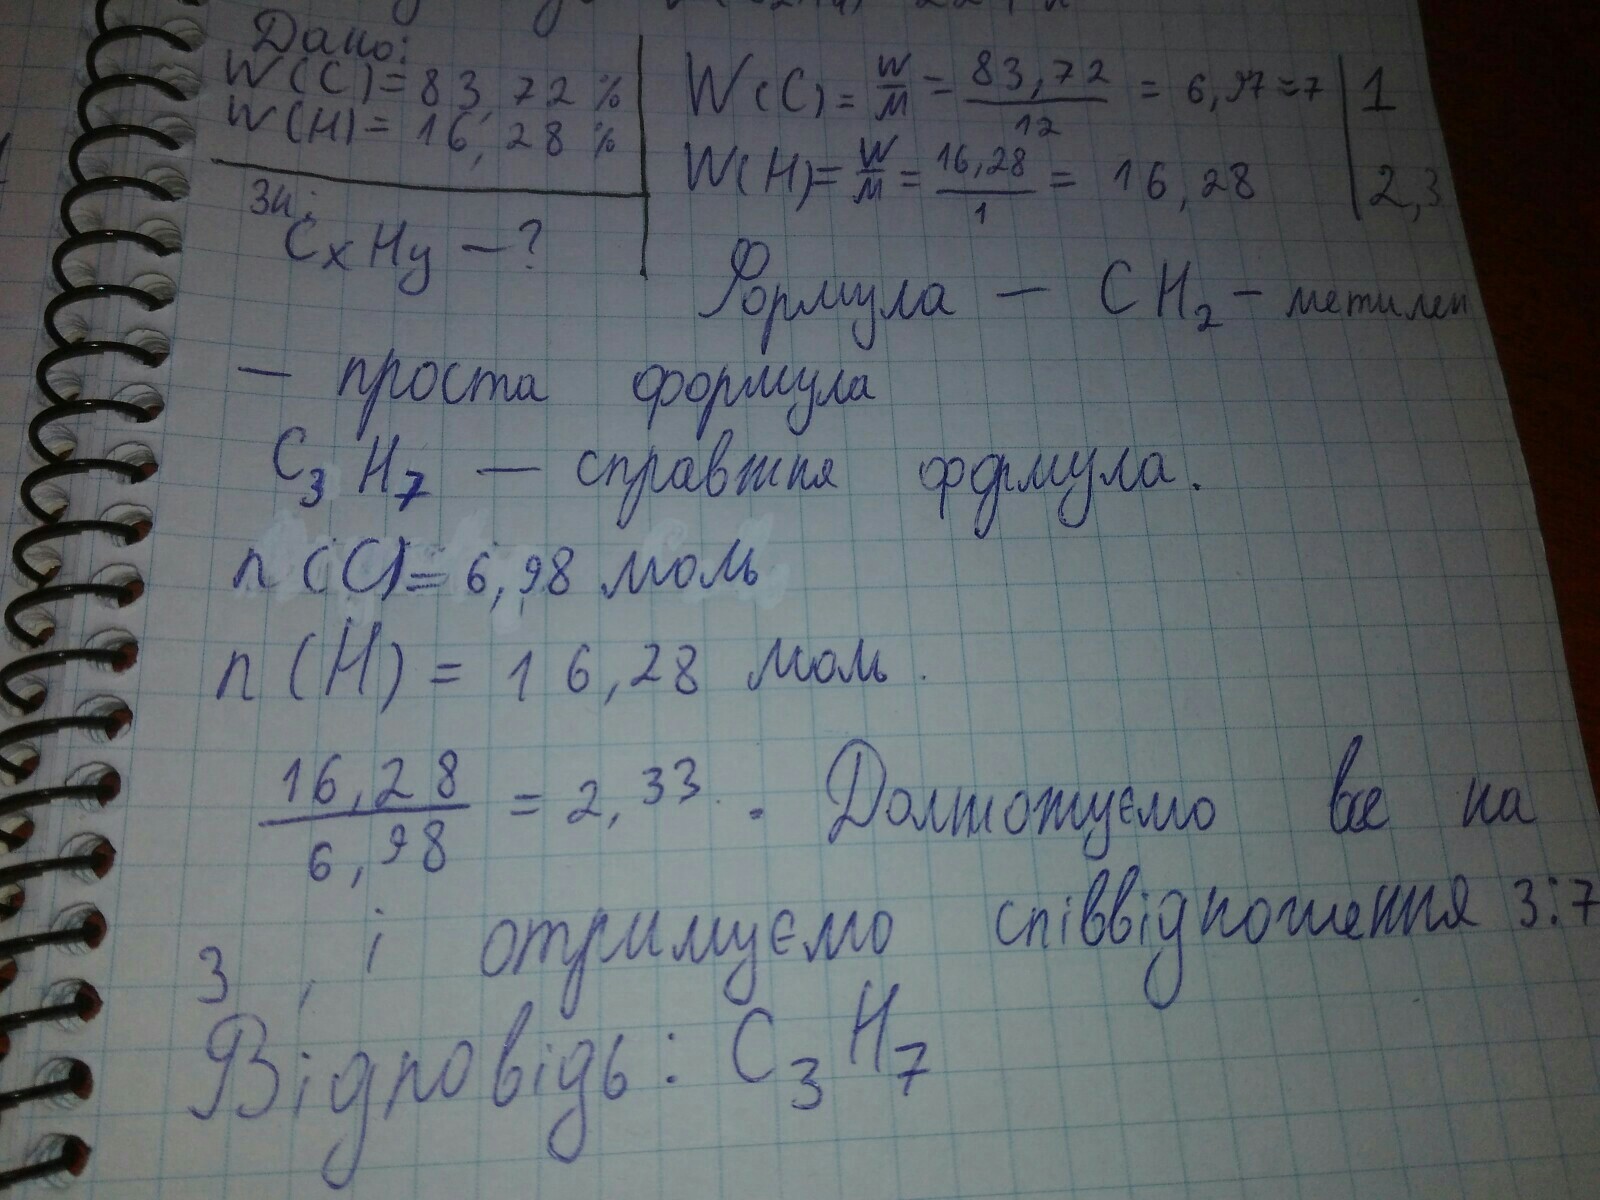 Дано:
W(C)=83,72%
W(H)=16,28%
Зн:
CxHy – ?
W(C)= W/M – 83,72/12 = 6,97≈7 | 1
W(H)= W/M = 16,28/1 = 16,28 | 2,3
Формула – CH2 – метилен
– проста формула
C3H7 – справжня формула.
n(C)= 6,98 моль
n(H) = 16,28 моль.
16,28/6,98 = 2,33. Домножуємо все на
3, і отримуємо співвідношення 3:7
Відповідь: C3H7